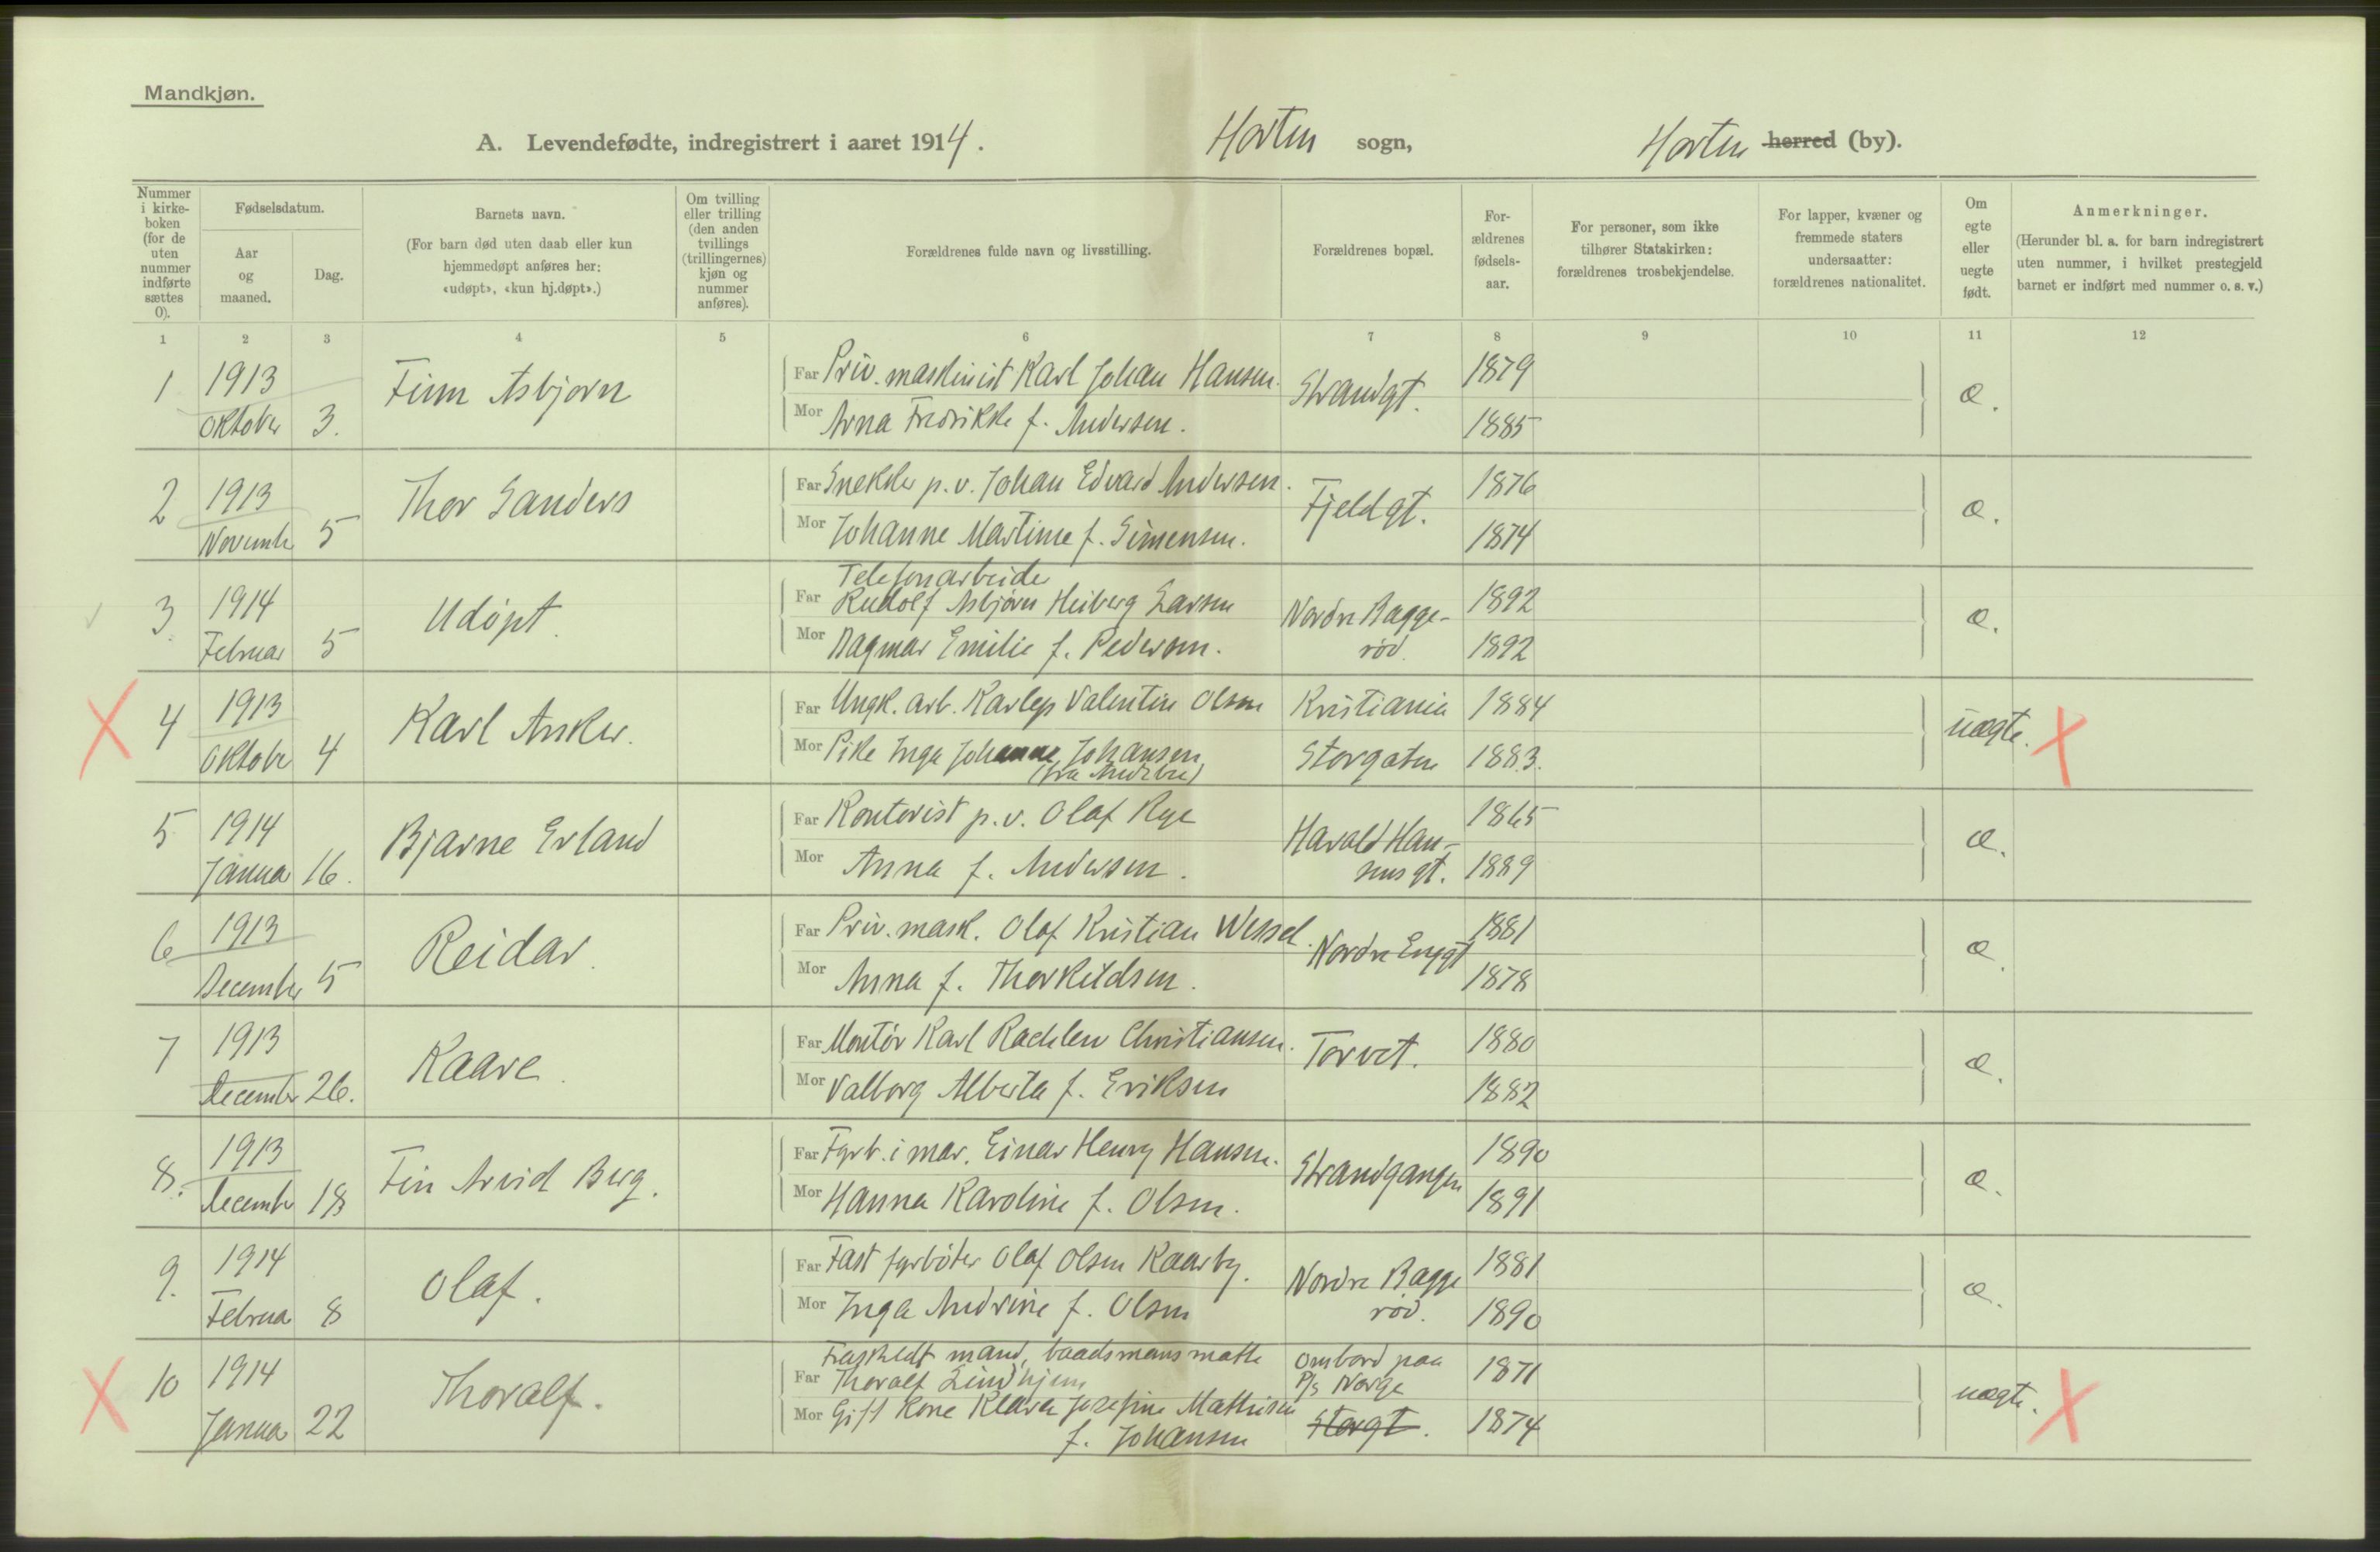 Mandkjøn.
A. Levendefødte, indregistrert i aaret 1914. Horten sogn, Horten herred (by).
Nummer i kirke-boken (for de uten nummer indførte sættes 0).
Fødselsdatum.
Aar og maaned.
Dag.
Barnets navn.
(For barn død uten daab eller kun hjemmedøpt anføres her: «udøpt», «kun hj.døpt».)
Om tvilling eller trilling (den anden tvillings (trillingernes) kjøn og nummer anføres).
Forældrenes fulde navn og livsstilling.
Forældrenes bopæl.
For-ældrenes fødsels-aar.
For personer, som ikke tilhører Statskirken: forældrenes trosbekjendelse.
For lapper, kvæner og fremmede staters undersaatter: forældrenes nationalitet.
Om egte eller uegte født.
Anmerkninger.
(Herunder bl. a. for barn indregistrert uten nummer, i hvilket prestegjeld barnet er indført med nummer o. s. v.)
1 2 3 4 5 6 7 8 9 10 11 12
1 1913 Oktober 3. Finn Asbjørn
Far Priv. maskinist Karl Johan Hansen. Strandgt. 1879 æ.
Mor Anna Fredrikke f. Andersen. 1885
2 1913 Novembr 5 Thor Sanders
Far Snekker p.v. Johan Edvard Andersen. Fjeldgt. 1876 æ.
Mor Johanne Martine f. Simensen. 1874
3. 1914 Februar 5 Udøpt.
Telefonarbeider
Far Rudolf Asbjørn Heiberg Larsen Nordre Bagge- 1892 æ.
Mor Dagmar Emilie f. Pedersen. rød. 1892
4 1913 Oktobr 4 Karl Anker.
Far Ungk. arb. Karleys Valentin Olsen Kristiania 1884 uægte.
Mor Pike Inga Johanne Johansen Storgaten 1883.
5 1914 Januar 16. Bjarne Erland
Far Kontorist p.v. Olaf Rye Harald Han- 1865 æ.
Mor Anna f. Andersen. sens gt. 1889
6 1913 December 5 Reidar.
Far Priv. mask. Olaf Kristian Wessel. Nordre Enggt 1881 æ.
Mor Anna f. Thorkildsen. 1878
7 1913 December 26. Kaare.
Far Montør Karl Rachlew Christiansen. Torvet. 1880 æ.
Mor Valborg Alberta f. Eriksen 1882
8. 1913 December 18 Fin Arvid Berg.
Far Fyrb. i mar. Einar Henry Hansen. Strandgangen 1890 æ.
Mor Hanna Karoline f. Olsen. 1891
9. 1914 Februar 8 Olaf.
Far Fast fyrbøter Olaf Olsen Kaarby. Nordre Bagge 1881 æ.
Mor Inga Andrine f. Olsen rød. 1890
10 1914 Januar 22 Thoralf.
Fraskildt mand, baadsmans matte Ombord paa
Far Thoralf Lindhjem P/s Norge 1871 uægte.
Mor Gift kone Klara Josefine Mathisen Storgt. 1874
f. Johansen